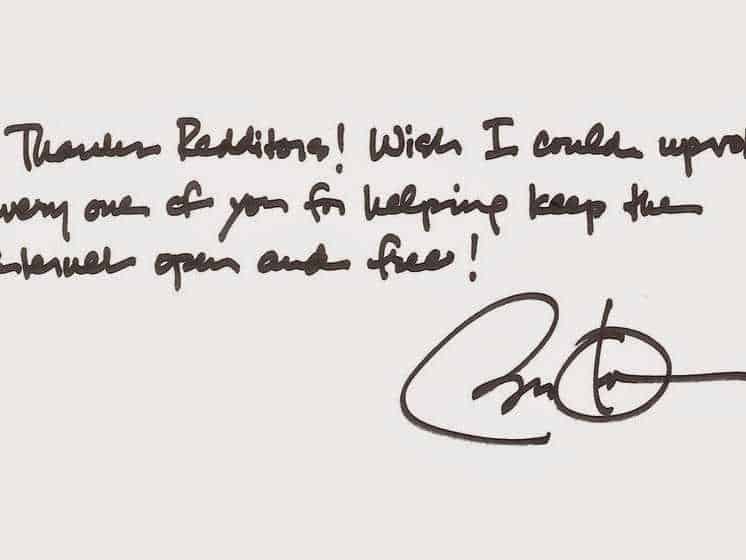 Thanks Redditors! Wish I could upvo
very one of you for helping keep the
nternet open and free!